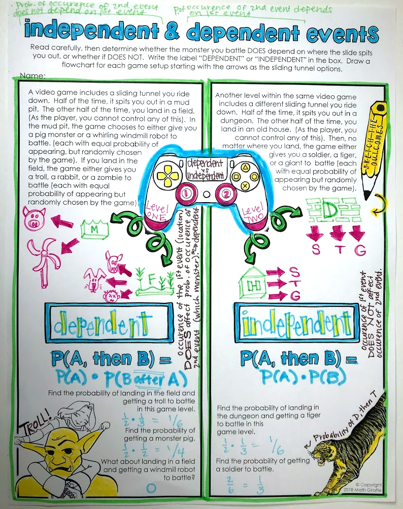 Prob. of occurrence of 2nd event
does not depend on 1st event
occurrence of 2nd event depends
on 1st event
independent & dependent events
Read carefully, then determine whether the monster you battle DOES depend on where the slide spits
you out, or whether if DOES NOT. Write the label "DEPENDENT" or "INDEPENDENT" in the box. Draw a
flowchart for each game setup starting with the arrows as the sliding tunnel options.
Name:
A video game includes a sliding tunnel you ride
down. Half of the time, it spits you out in a mud
pit. The other half of the time, you land in a field.
(As the player, you cannot control any of this). In
the mud pit, the game chooses to either give you
a pig monster or a whirling windmill robot to
battle, (each with equal probability of
appearing, but randomly chosen
by the game). If you land in the
field, the game either gives you
a troll, a rabbit, or a zombie to
battle (each with equal
probability of appearing but
randomly chosen by the game).
Another level within the same video game
includes a different sliding tunnel you ride
down. Half of the time, it spits you out in a
dungeon. The other half of the time, you
land in an old house. (As the player, you
cannot control any of this). Then, no
matter where you land, the game either
gives you a soldier, a tiger,
or a giant to battle (each
with equal probability of
appearing but randomly
chosen by the game).
dependent
vs
independent
1
2
Level
ONE
Level
TWO
M
F
D
S T G
H
S
T
G
occurence of the 1st event (location)
DOES affect prob. of occurence of
2nd event (which monster) → dependent
occurence of 1st event
DOES NOT affect
occurence of 2nd event.
dependent
P(A, then B) =
P(A) • P(B after A)
Find the probability of landing in the field and
getting a troll to battle in
this game level.
1/2 · 1/3 = 1/6
Find the probability of
getting a monster pig.
1/2 · 1/2 = 1/4
What about landing in a field
and getting a windmill robot
to battle?
0
TROLL!
independent
P(A, then B) =
P(A) • P(B)
Find the probability of landing in
the dungeon and getting a tiger
to battle in this
game level.
1/2 · 1/3 = 1/6
Find the probability of getting
a soldier to battle.
2/6 = 1/3
Probability of D then T
© Copyright
2018 Math Giraffe